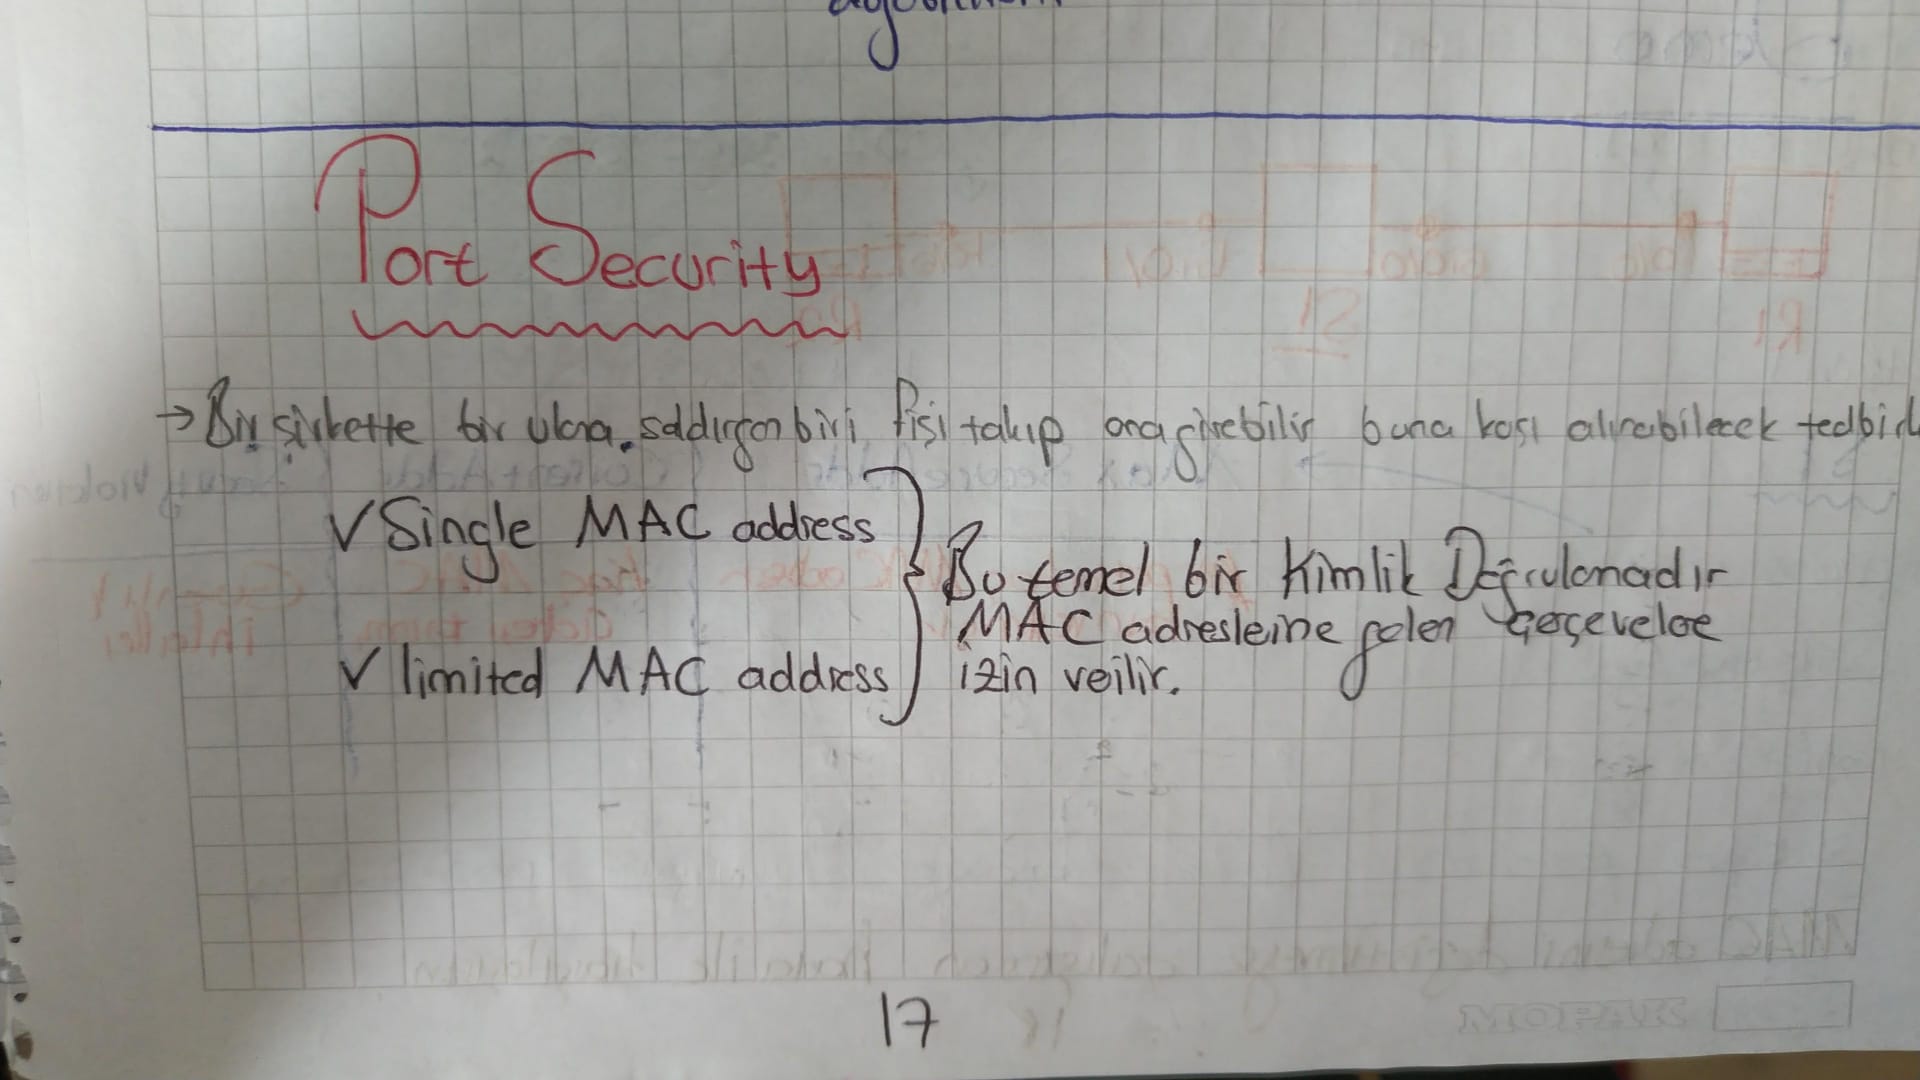 algorithm
Port Security
→ Bir şirkette bir ukna. saldırgan biri fişi takıp ona girebilir buna karşı alınabilecek tedbirl
✓ Single MAC address
✓ limited MAC address
Bu temel bir Kimlik Doğrulamadır
MAC adreslerine gelen çerçevelere
izin verilir.
17